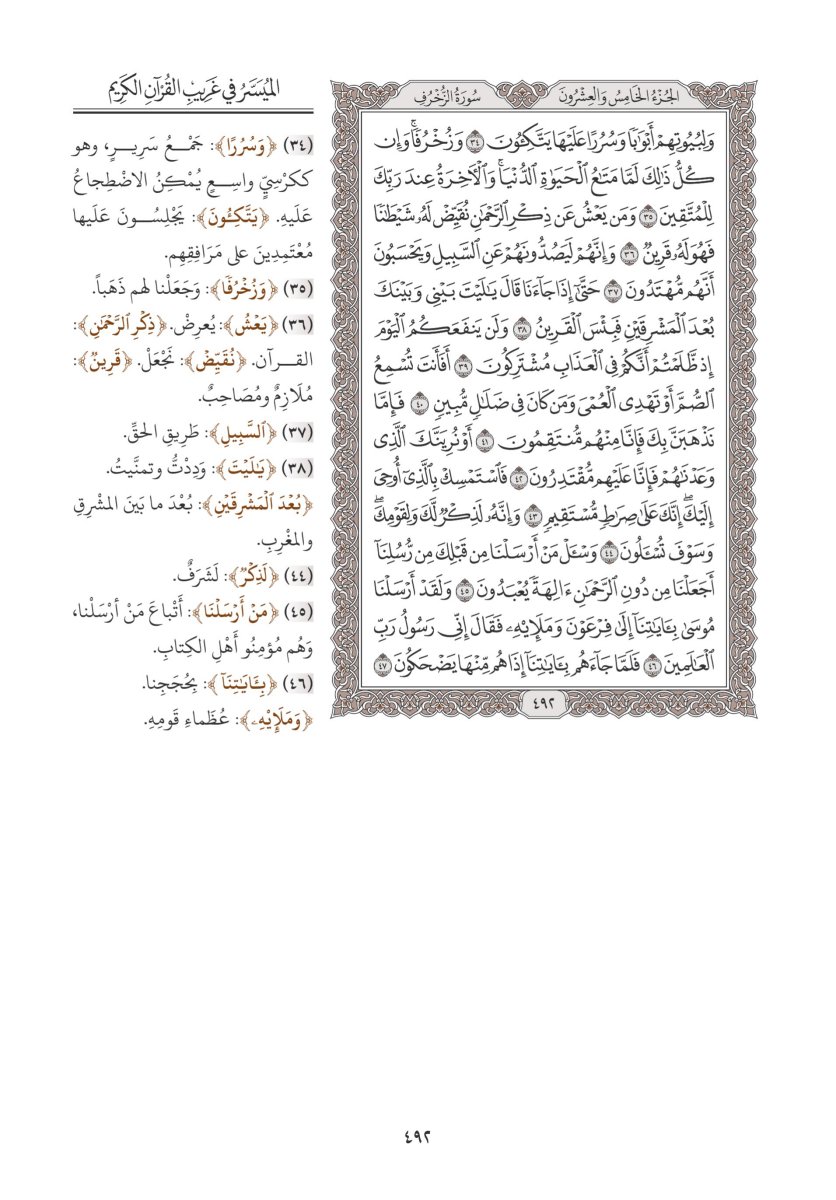 الجُزْءُ الخَامِسُ وَالعِشْرُونَ
سُورَةُ الزُّخْرُفِ
وَلِبُيُوتِهِمْ أَبْوَٰبًا وَسُرُرًا عَلَيْهَا يَتَّكِـُٔونَ ٣٤ وَزُخْرُفًاۚ وَإِن
كُلُّ ذَٰلِكَ لَمَّا مَتَٰعُ ٱلْحَيَوٰةِ ٱلدُّنْيَاۚ وَٱلْأَخِرَةُ عِندَ رَبِّكَ
لِلْمُتَّقِينَ ٣٥ وَمَن يَعْشُ عَن ذِكْرِ ٱلرَّحْمَٰنِ نُقَيِّضْ لَهُۥ شَيْطَٰنًا
فَهُوَ لَهُۥ قَرِينٌ ٣٦ وَإِنَّهُمْ لَيَصُدُّونَهُمْ عَنِ ٱلسَّبِيلِ وَيَحْسَبُونَ
أَنَّهُم مُّهْتَدُونَ ٣٧ حَتَّىٰٓ إِذَا جَآءَنَا قَالَ يَٰلَيْتَ بَيْنِى وَبَيْنَكَ
بُعْدَ ٱلْمَشْرِقَيْنِ فَبِئْسَ ٱلْقَرِينُ ٣٨ وَلَن يَنفَعَكُمُ ٱلْيَوْمَ
إِذ ظَّلَمْتُمْ أَنَّكُمْ فِى ٱلْعَذَابِ مُشْتَرِكُونَ ٣٩ أَفَأَنتَ تُسْمِعُ
ٱلصُّمَّ أَوْ تَهْدِى ٱلْعُمْىَ وَمَن كَانَ فِى ضَلَٰلٍ مُّبِينٍ ٤٠ فَإِمَّا
نَذْهَبَنَّ بِكَ فَإِنَّا مِنْهُم مُّنتَقِمُونَ ٤١ أَوْ نُرِيَنَّكَ ٱلَّذِى
وَعَدْنَٰهُمْ فَإِنَّا عَلَيْهِم مُّقْتَدِرُونَ ٤٢ فَٱسْتَمْسِكْ بِٱلَّذِىٓ أُوحِىَ
إِلَيْكَۖ إِنَّكَ عَلَىٰ صِرَٰطٍ مُّسْتَقِيمٍ ٤٣ وَإِنَّهُۥ لَذِكْرٌ لَّكَ وَلِقَوْمِكَۖ
وَسَوْفَ تُسْـَٔلُونَ ٤٤ وَسْـَٔلْ مَنْ أَرْسَلْنَا مِن قَبْلِكَ مِن رُّسُلِنَآ
أَجَعَلْنَا مِن دُونِ ٱلرَّحْمَٰنِ ءَالِهَةً يُعْبَدُونَ ٤٥ وَلَقَدْ أَرْسَلْنَا
مُوسَىٰ بِـَٔايَٰتِنَآ إِلَىٰ فِرْعَوْنَ وَمَلَإِيْهِۦ فَقَالَ إِنِّى رَسُولُ رَبِّ
ٱلْعَٰلَمِينَ ٤٦ فَلَمَّا جَآءَهُم بِـَٔايَٰتِنَآ إِذَا هُم مِّنْهَا يَضْحَكُونَ ٤٧
٤٩٢
المُيَسَّرُ في غَرِيبِ القُرْآنِ الكَرِيمِ
(٣٤) ﴿وَسُرُرًا﴾: جَمْعُ سَرِيرٍ، وهو
ككرْسِيٍّ واسِعٍ يُمْكِنُ الاضْطِجاعُ
عَلَيهِ. ﴿يَتَّكِـُٔونَ﴾: يَجْلِسُونَ عَلَيها
مُعْتَمِدِينَ على مَرَافِقِهِم.
(٣٥) ﴿وَزُخْرُفًا﴾: وَجَعَلْنا لهم ذَهَباً.
(٣٦) ﴿يَعْشُ﴾: يُعرِضْ. ﴿ذِكْرِ ٱلرَّحْمَٰنِ﴾:
القرآن. ﴿نُقَيِّضْ﴾: نَجْعَلْ. ﴿قَرِينٌ﴾:
مُلَازِمٌ ومُصَاحِبٌ.
(٣٧) ﴿ٱلسَّبِيلِ﴾: طَرِيقِ الحقِّ.
(٣٨) ﴿يَٰلَيْتَ﴾: وَدِدْتُ وتمنَّيتُ.
﴿بُعْدَ ٱلْمَشْرِقَيْنِ﴾: بُعْدَ ما بَينَ المشْرِقِ
والمغْرِبِ.
(٤٤) ﴿لَذِكْرٌ﴾: لَشَرَفٌ.
(٤٥) ﴿مَنْ أَرْسَلْنَا﴾: أَتْباعَ مَنْ أرْسَلْنا،
وَهُم مُؤْمِنُو أَهْلِ الكِتابِ.
(٤٦) ﴿بِـَٔايَٰتِنَآ﴾: بِحُجَجِنا.
﴿وَمَلَإِيْهِۦ﴾: عُظَماءِ قَومِهِ.
٤٩٢